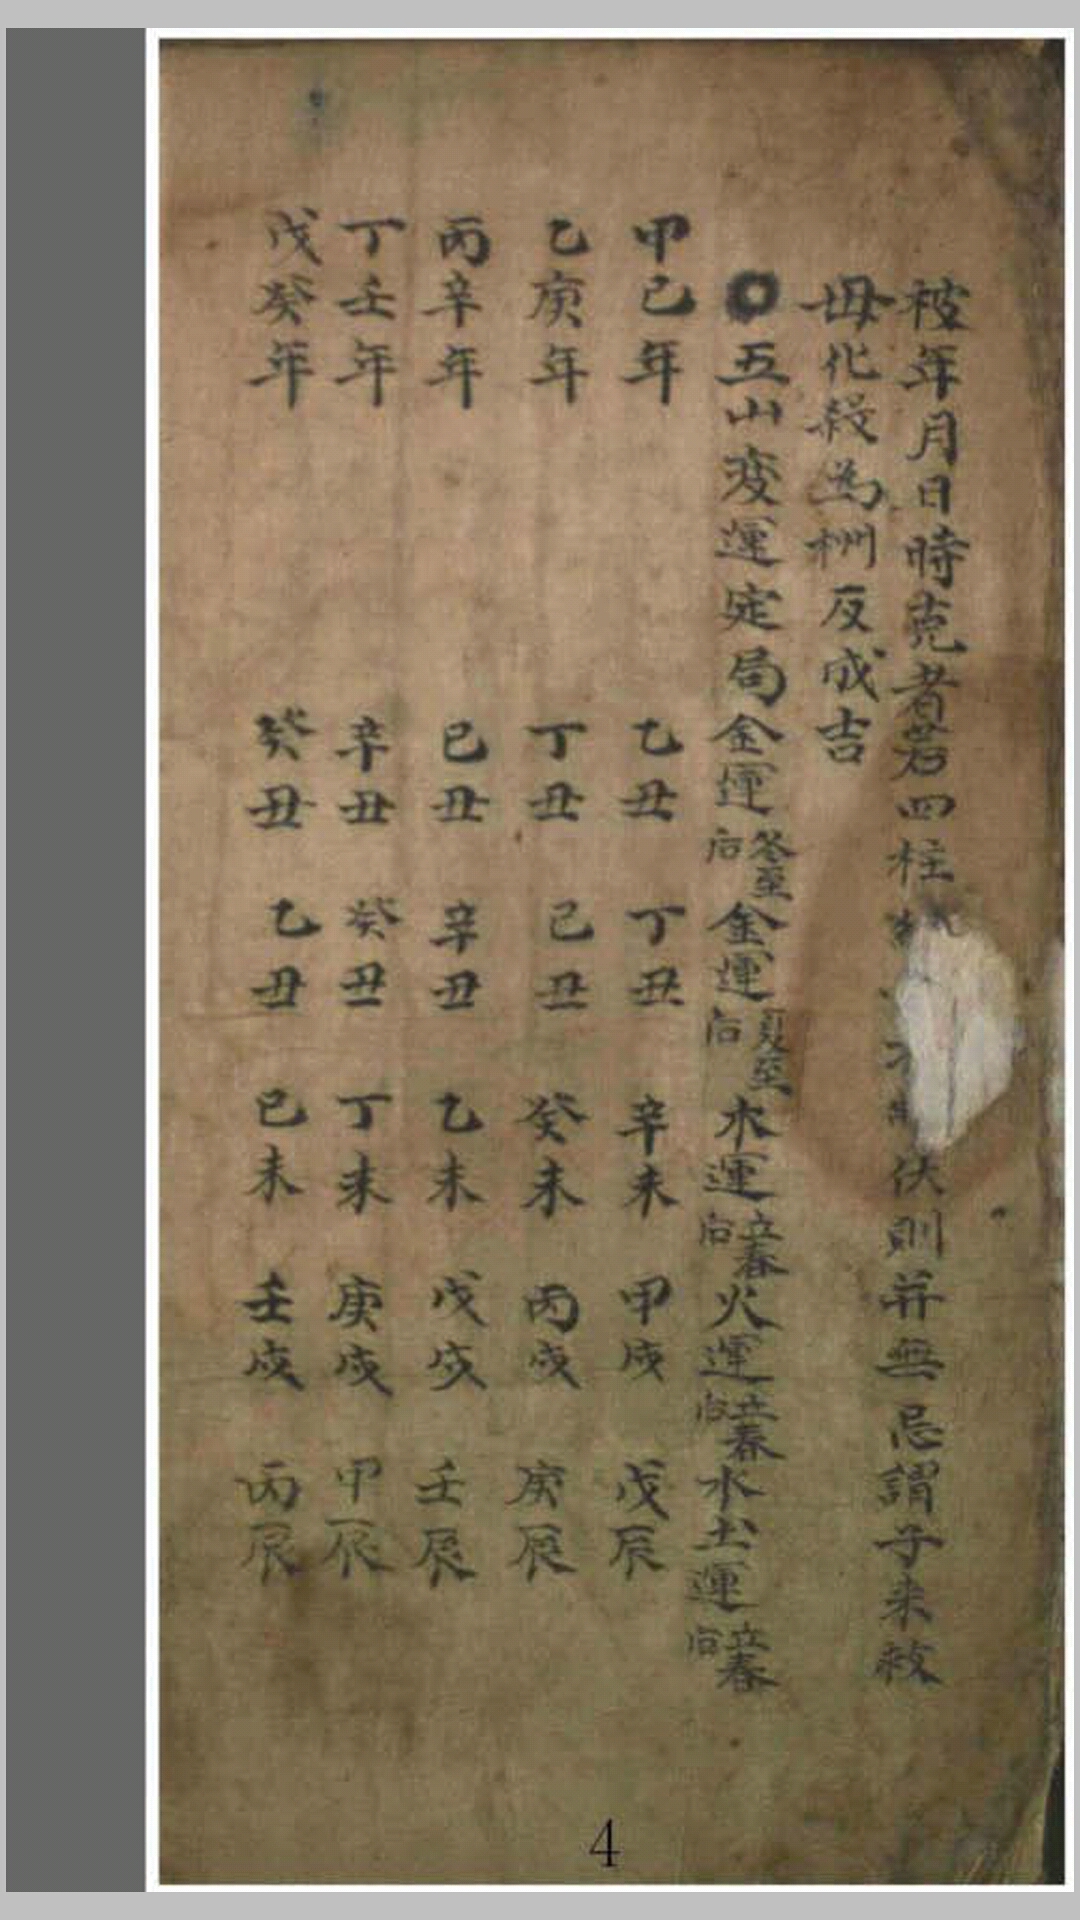 被年月日時克者若四柱伏則并無忌謂子来救
母化殺為权反成吉
五山变運定局金運冬至后金運夏至后木運立春后火運立春后水土運立春后
甲己年 乙丑 丁丑 辛未 甲戌 戊辰
乙庚年 丁丑 己丑 癸未 丙戌 庚辰
丙辛年 己丑 辛丑 乙未 戊戌 壬辰
丁壬年 辛丑 癸丑 丁未 庚戌 甲辰
戊癸年 癸丑 乙丑 己未 壬戌 丙辰
4